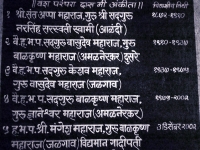 ॥ वंश परंपरा दास मी अंकीला ॥
१ श्री.संत अप्पा महाराज, गुरु श्री सद्‌गुरु
नरसिंह सरस्वती स्वामी (आळंदी)
२ वै.ह.भ.प. सद्‌गुरु वासुदेव महाराज, गुरु
बाळकृष्ण महाराज (अमळनेरकर) दुसरे
३ वै.ह.भ.प.सद्‌गुरु केशव महाराज,
गुरु वासुदेव महाराज (जळगाव)
४ वै.ह.भ.प.सद्‌गुरु बाळकृष्ण महाराज,
गुरु ज्ञानेश्वर महाराज (अमळनेरकर)
५ ह.भ.प. श्री. मंगेश महाराज, गुरु बाळकृष्ण ३ डिसेंबर २००२
महाराज (जळगाव) विद्यमान गादीपती